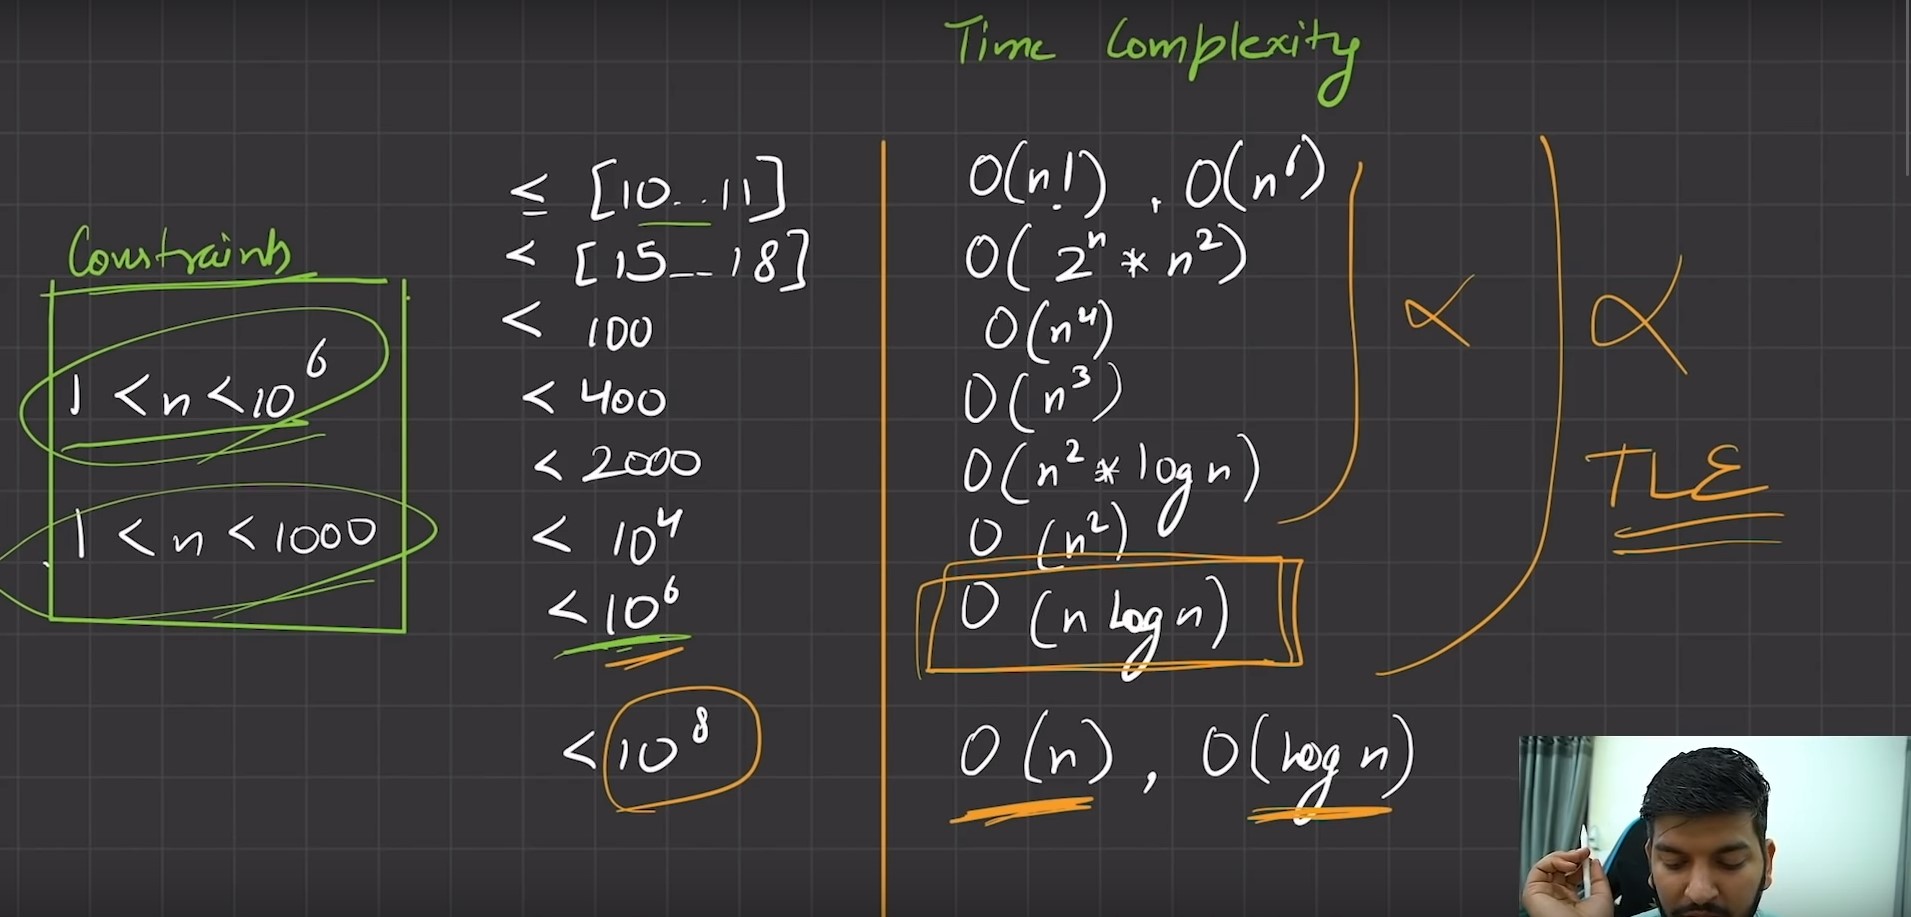 Time Complexity
Constraints
1 < n < 10⁶
1 < n < 1000
≤ [10...11] O(n!), O(n⁶)
< [15--18] O(2ⁿ * n²)
< 100 O(n⁴)
< 400 O(n³)
< 2000 O(n² * log n)
< 10⁴ O(n²)
< 10⁶ O(n log n)
< 10⁸ O(n), O(log n)
TLE